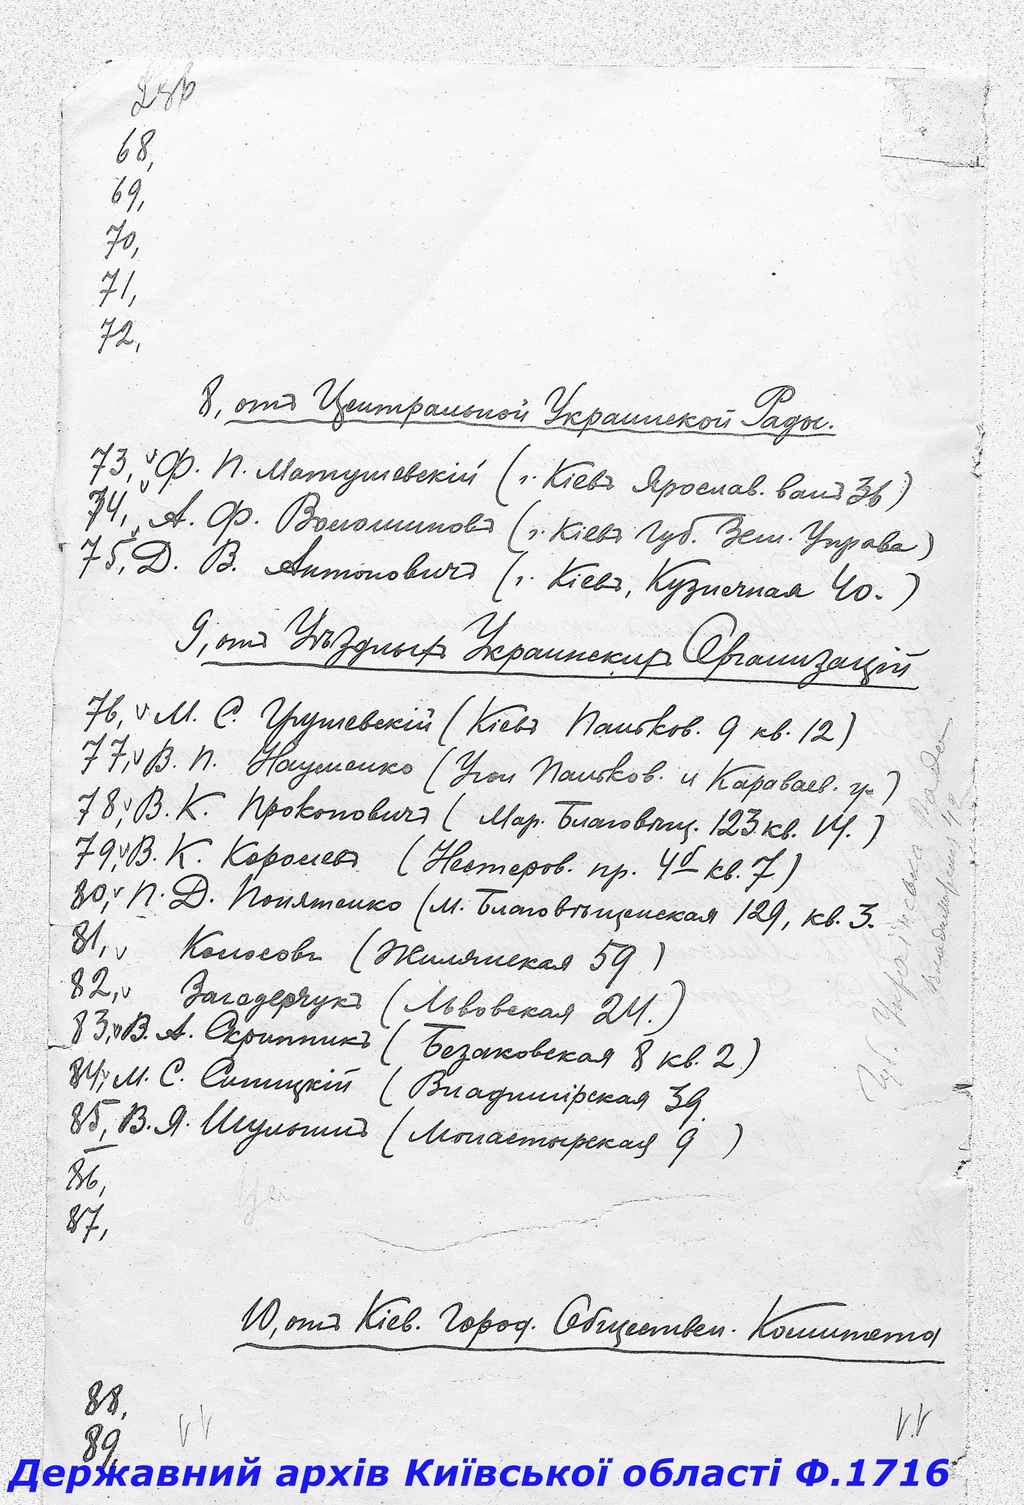 68,
69,
70,
71,
72,
8, отъ Центральной Украинской Рады.
73, v Ф. П. Матушевскій (г. Кіевъ Ярослав. валъ 36)
74, v А. Ф. Волошиновъ (г. Кіевъ Губ. Зем. Управа)
75, v Д. В. Антоновичъ (г. Кіевъ, Кузнечная 40.)
9, отъ Уѣздныхъ Украинскихъ Организацій
76, v М. С. Грушевскій (Кіевъ Паньков. 9 кв. 12)
77, v В. П. Науменко (Угол Паньков. и Караваев. у.)
78, v В. К. Прокоповичъ (Мар. Благовѣщ. 123 кв. 14.)
79, v В. К. Королевъ (Нестеров. пр. 4б кв. 7)
80, v П. Д. Понятенко (М. Благовѣщенская 129, кв. 3.
81, v Колосовъ (Жилянская 59)
82, v Загодерчукъ (Львовская 24.)
83, v В. А. Скрипникъ (Безаковская 8 кв. 2)
84, v М. С. Синицкій (Владимірская 39.
85, В. Я. Шульгинъ (Монастырская 9)
86,
87,
Губ. Украінська Рада
Владимирск 42
10, отъ Кіев. Город. Обществен. Комитета
88,
89,
V V
V. V
Державний архів Київської області Ф.1716